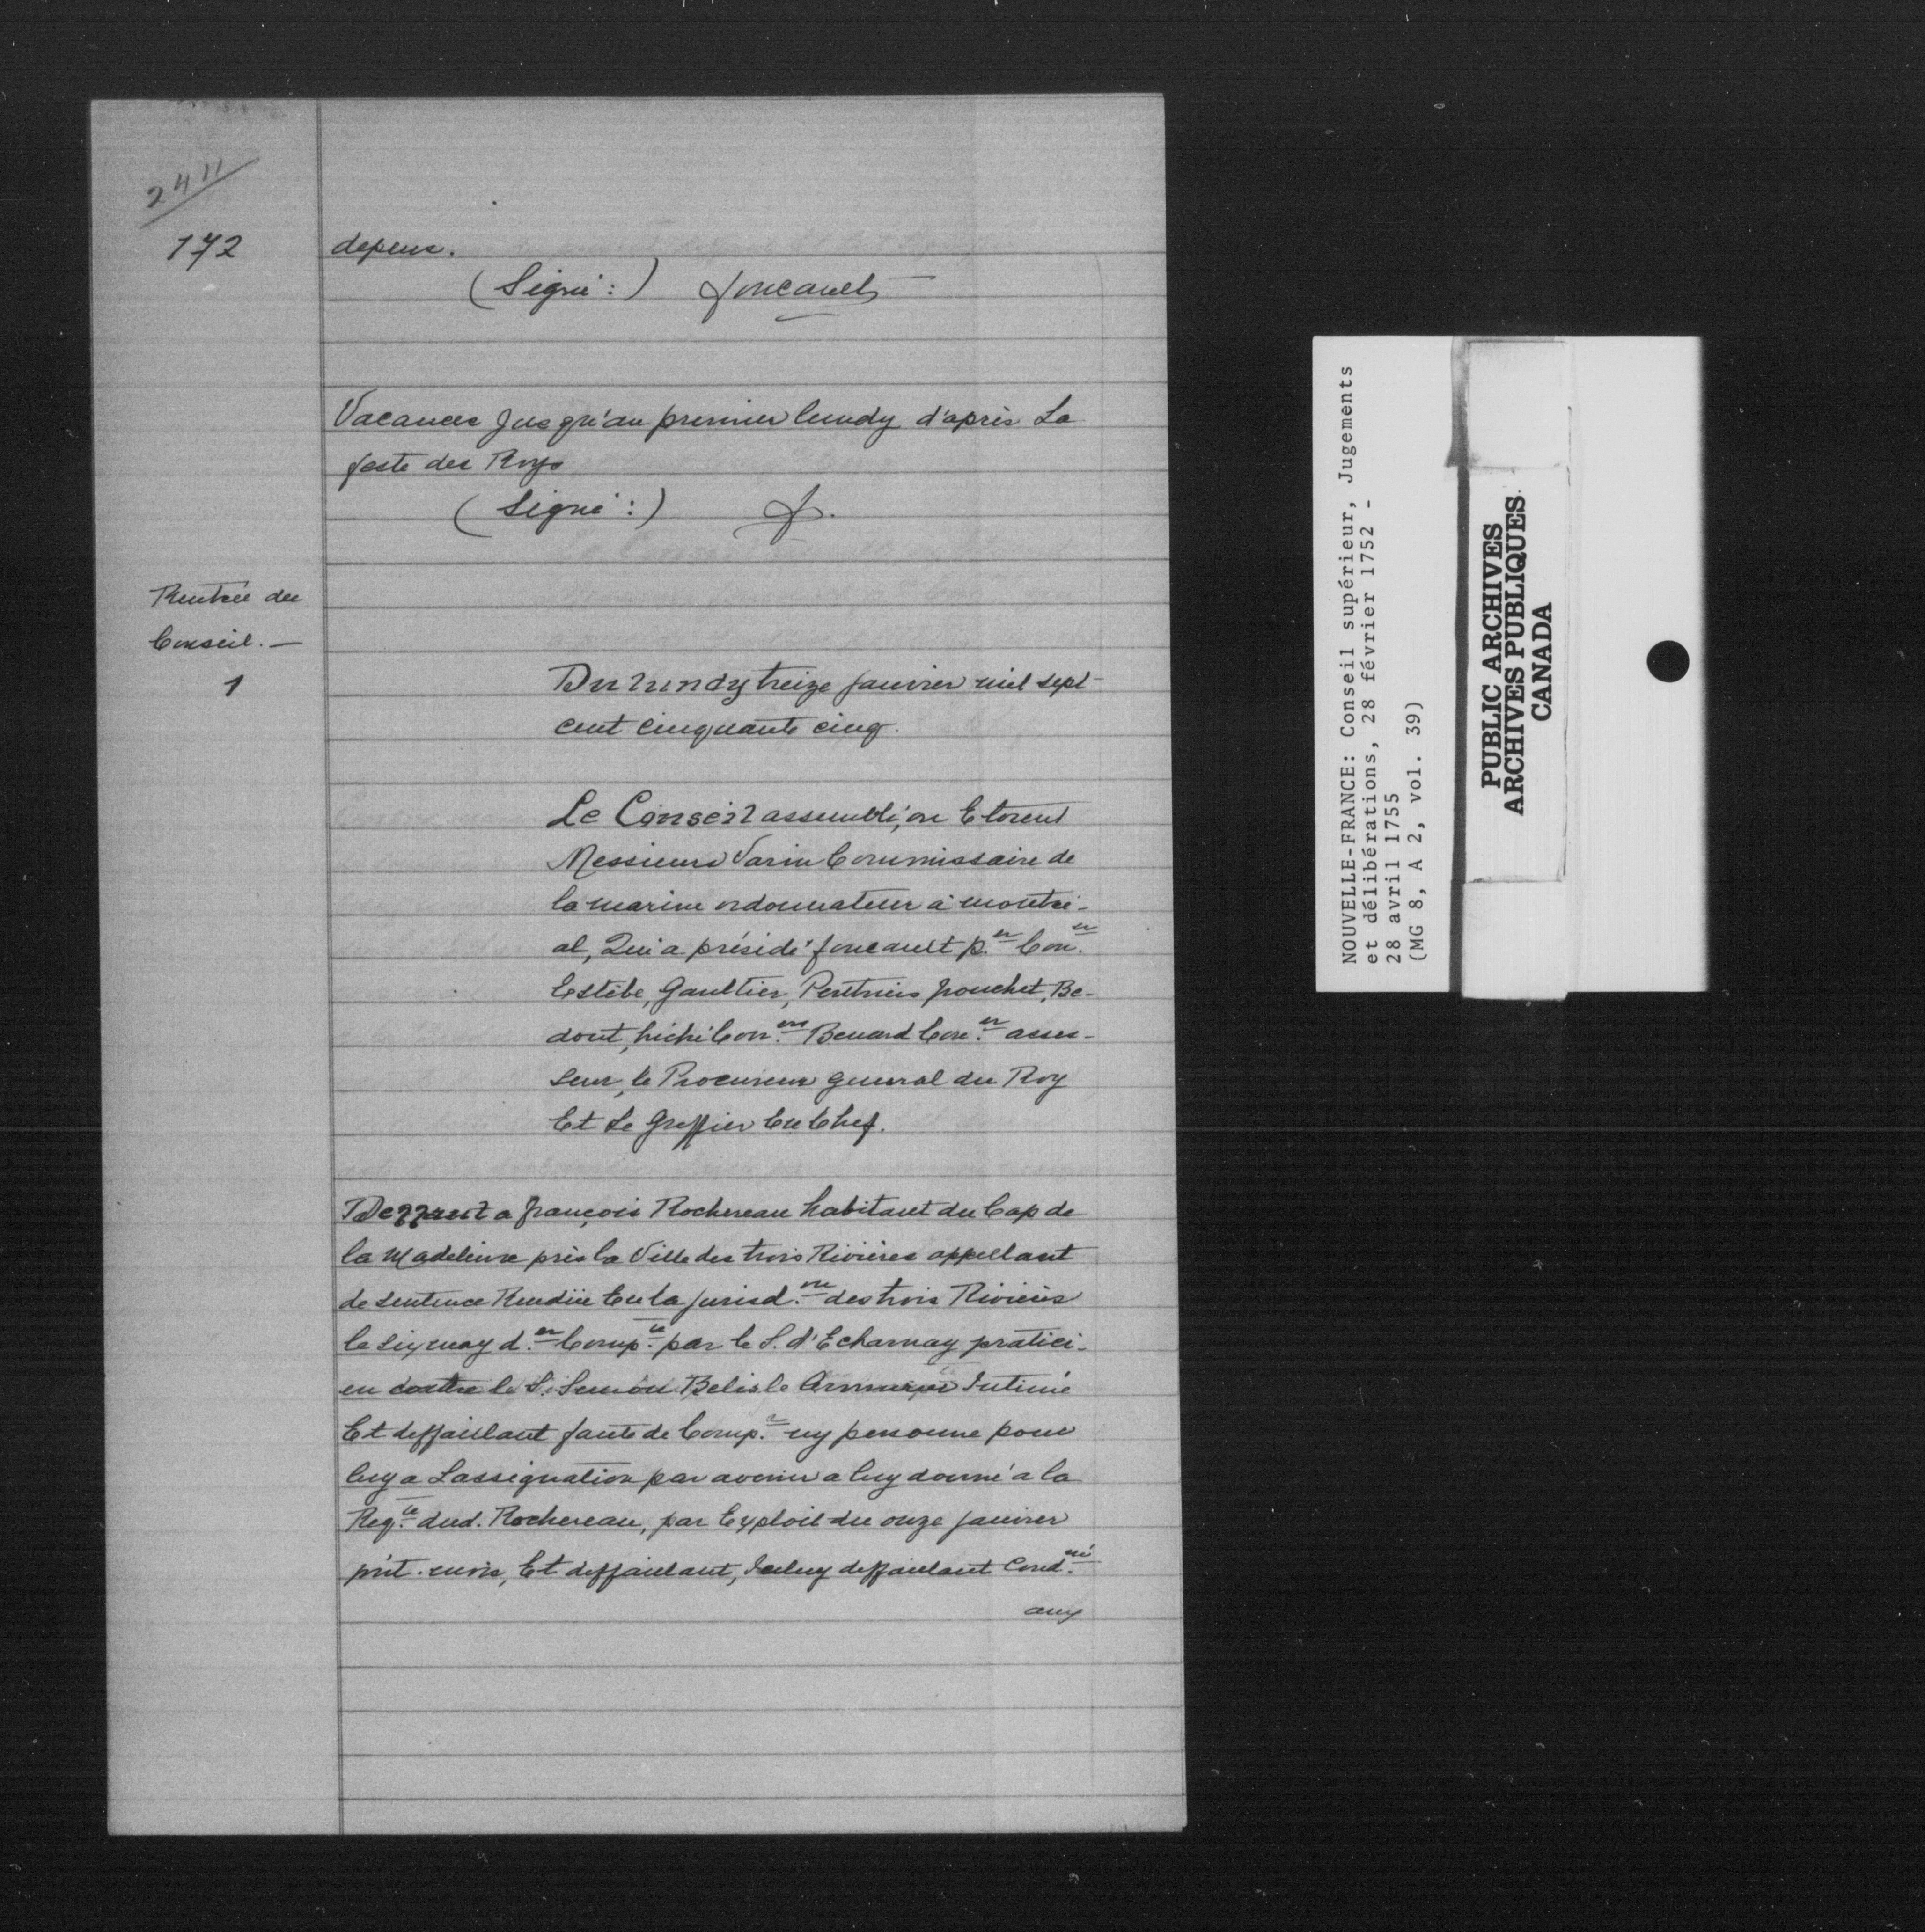 2411
172
depens.
(Signé:) foucault
Vacances Jusqu'au premier lundy d'après La
feste des Roys
(Signé:) f.
Rentrée du
Conseil. —
1
Du Lundy treize Janvier mil sept
cent cinquante cinq.
Le Conseil assemblé, ou Etoient
Messieurs Varin Commissaire de
la marine ordonnateur à montré-
al, Qui a présidé foucault p.er Con.er
Estèbe, Gaultier, Perthuis, Jouchet, Be-
dout, hiché Con.ers Benard Con.er asses-
seur, le Procureur general du Roy
Et Le Greffier En Chef.
Deffaut a françois Rochereau habitant du Cap de
la Madeleine près la Ville des trois Rivières appellant
de sentence Rendüe En la Jurisd.on des trois Rivières
le six may d.er Comp.te par le S. d'Echarnay pratici-
en contre le S. Belisle Armurier Intimé
Et deffaillant faute de Comp.r ny personne pour
luy a Lassignation par avenir a luy donné a la
Req.te dud. Rochereau, par Exploit du onze Janvier
p'nt. mois, Et deffaillant, Iceluy deffaillant Cond.né
aux
NOUVELLE-FRANCE: Conseil supérieur, Jugements
et délibérations, 28 février 1752 -
28 avril 1755
(MG 8, A 2, vol. 39)
PUBLIC ARCHIVES
ARCHIVES PUBLIQUES
CANADA